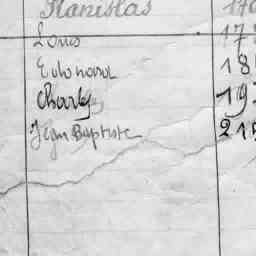 Stanislas 170
Louis 17
Edouard 18
Charles 19
Jean Baptiste 21